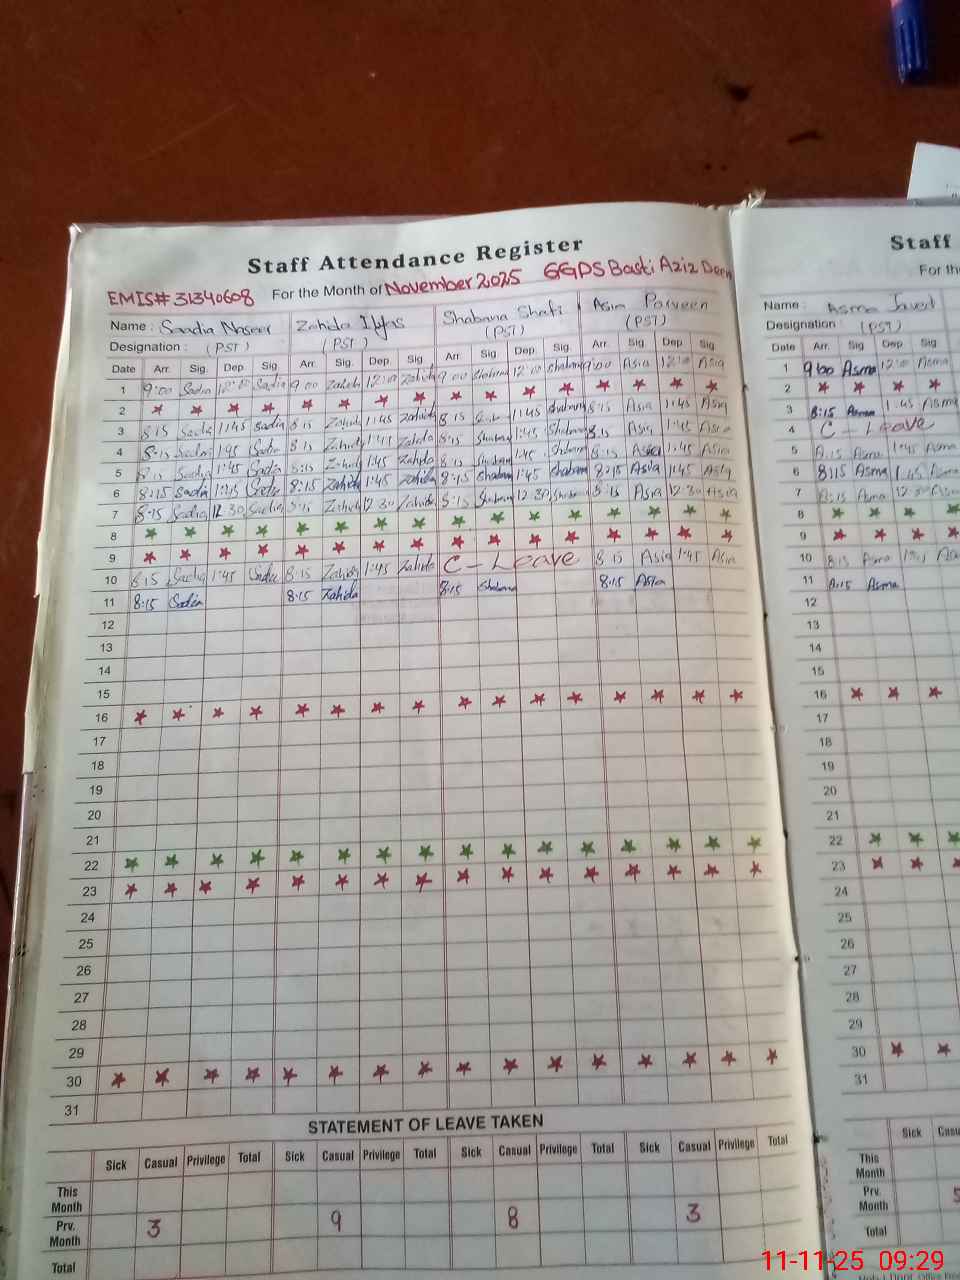 Staff Attendance Register
EMIS# 31340608 For the Month of November 2025 GGPS Basti Aziz Deen
Name : Saadia Naseer Zahida Ilyas Shabana Shafi Asia Parveen
Designation : (PST) (PST) (PST) (PST)
Date Arr. Sig. Dep Sig Arr. Sig. Dep Sig Arr. Sig Dep Sig. Arr. Sig. Dep Sig
1 9:00 Sadia 12:00 Sadia 9 00 Zahida 12:00 Zahida 9 00 Shabana 12:00 Shabana 9:00 Asia 12:00 Asia
2
3 8 15 Sadia 1:45 Sadia 8:15 Zahida 1:45 Zahida 8 15 1:45 Shabana 8:15 Asia 1:45 Asia
4 8:15 Sadia 1:45 Sadia 8:15 Zahida 1:45 Zahida 8:15 Shabana 1:45 Shabana 8:15 Asia 1:45 Asia
5 8:15 Sadia 1:45 Sadia 8:15 Zahida 1:45 Zahida 8:15 Shabana 1:45 Shabana 8:15 Asia 1:45 Asia
6 8:15 Sadia 1:45 Sadia 8:15 Zahida 1:45 Zahida 8:15 Shabana 1:45 Shabana 8:15 Asia 1:45 Asia
7 8:15 Sadia 12 30 Sadia 8:15 Zahida 12 30 Zahida 8:15 Shabana 12 30 8:15 Asia 12:30 Asia
8
9
10 8:15 Sadia 1:45 Sadia 8:15 Zahida 1:45 Zahida C - Leave 8 15 Asia 1:45 Asia
11 8:15 Sadia 8:15 Zahida 8:15 Shabana 8:15 Asia
12
13
14
15
16
17
18
19
20
21
22
23
24
25
26
27
28
29
30
31
STATEMENT OF LEAVE TAKEN
Sick Casual Privilege Total Sick Casual Privilege Total Sick Casual Privilege Total Sick Casual Privilege Total
This Month
Prv. Month 3 9 8 3
Total
Staff
For the
Name : Asma Javed
Designation : (PST)
Date Arr. Sig Dep Sig
1 9:00 Asma 12:00 Asma
2
3 8:15 Asma 1:45 Asma
4 C - Leave
5 8:15 Asma 1:45 Asma
6 8:15 Asma 1:45 Asma
7 8:15 Asma 12:30 Asma
8
9
10 8:15 Asma 1:45 Asma
11 8:15 Asma
12
13
14
15
16
17
18
19
20
21
22
23
24
25
26
27
28
29
30
31
Sick
This Month
Prv. Month 5
Total
11-11-25 09:29